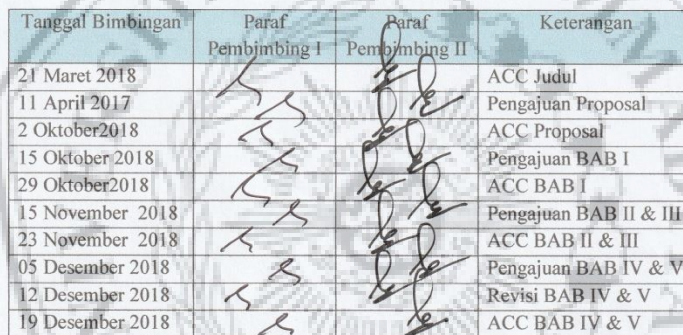 Tanggal Bimbingan Paraf Pembimbing I Paraf Pembimbing II Keterangan
21 Maret 2018 ACC Judul
11 April 2017 Pengajuan Proposal
2 Oktober2018 ACC Proposal
15 Oktober 2018 Pengajuan BAB I
29 Oktober2018 ACC BAB I
15 November 2018 Pengajuan BAB II & III
23 November 2018 ACC BAB II & III
05 Desember 2018 Pengajuan BAB IV & V
12 Desember 2018 Revisi BAB IV & V
19 Desember 2018 ACC BAB IV & V